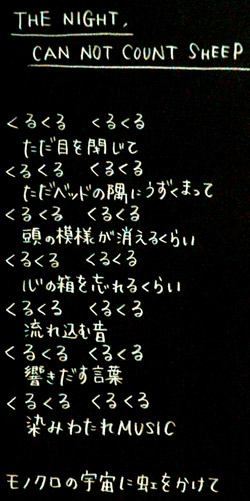 THE NIGHT,
CAN NOT COUNT SHEEP
くるくる くるくる
ただ目を閉じて
くるくる くるくる
ただベッドの隅にうずくまって
くるくる くるくる
頭の模様が消えるくらい
くるくる くるくる
心の箱を忘れるくらい
くるくる くるくる
流れ込む音
くるくる くるくる
響きだす言葉
くるくる くるくる
染みわたれMUSIC
モノクロの宇宙に虹をかけて